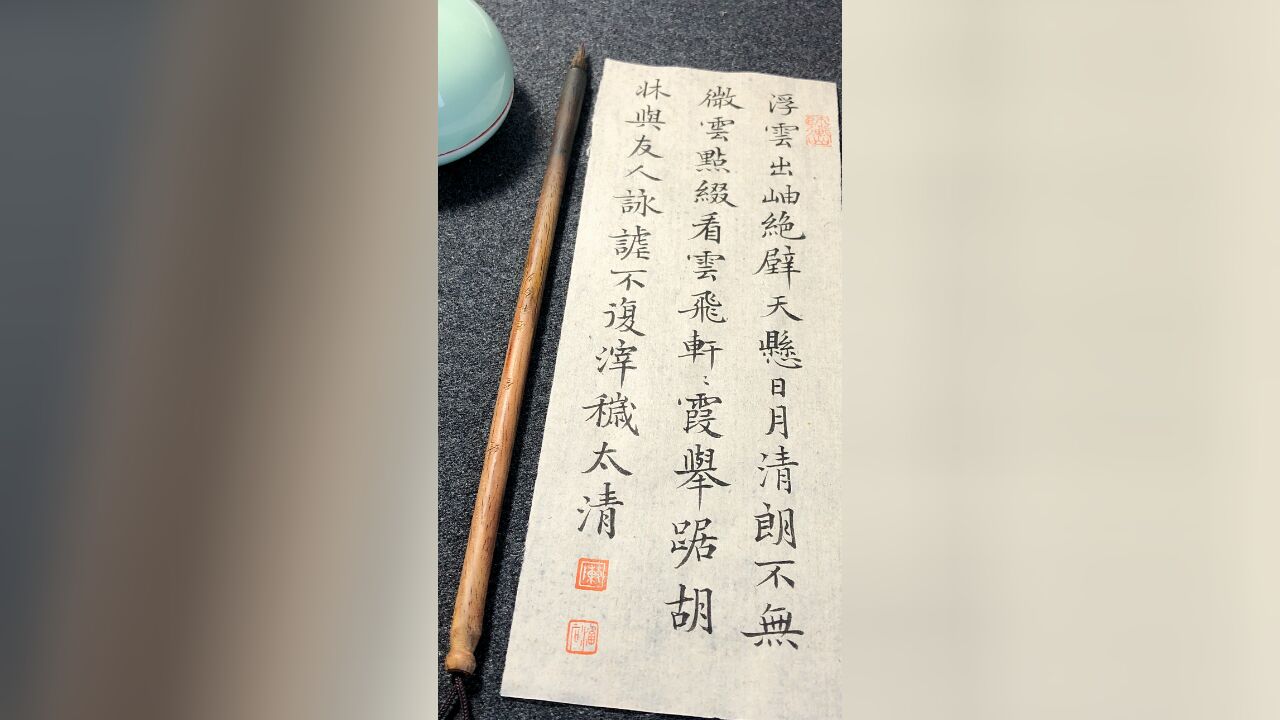 浮雲出岫絶壁天懸日月清朗不無
微雲點綴看雲飛軒〻霞舉踞胡
牀與友人詠謔不復滓穢太清